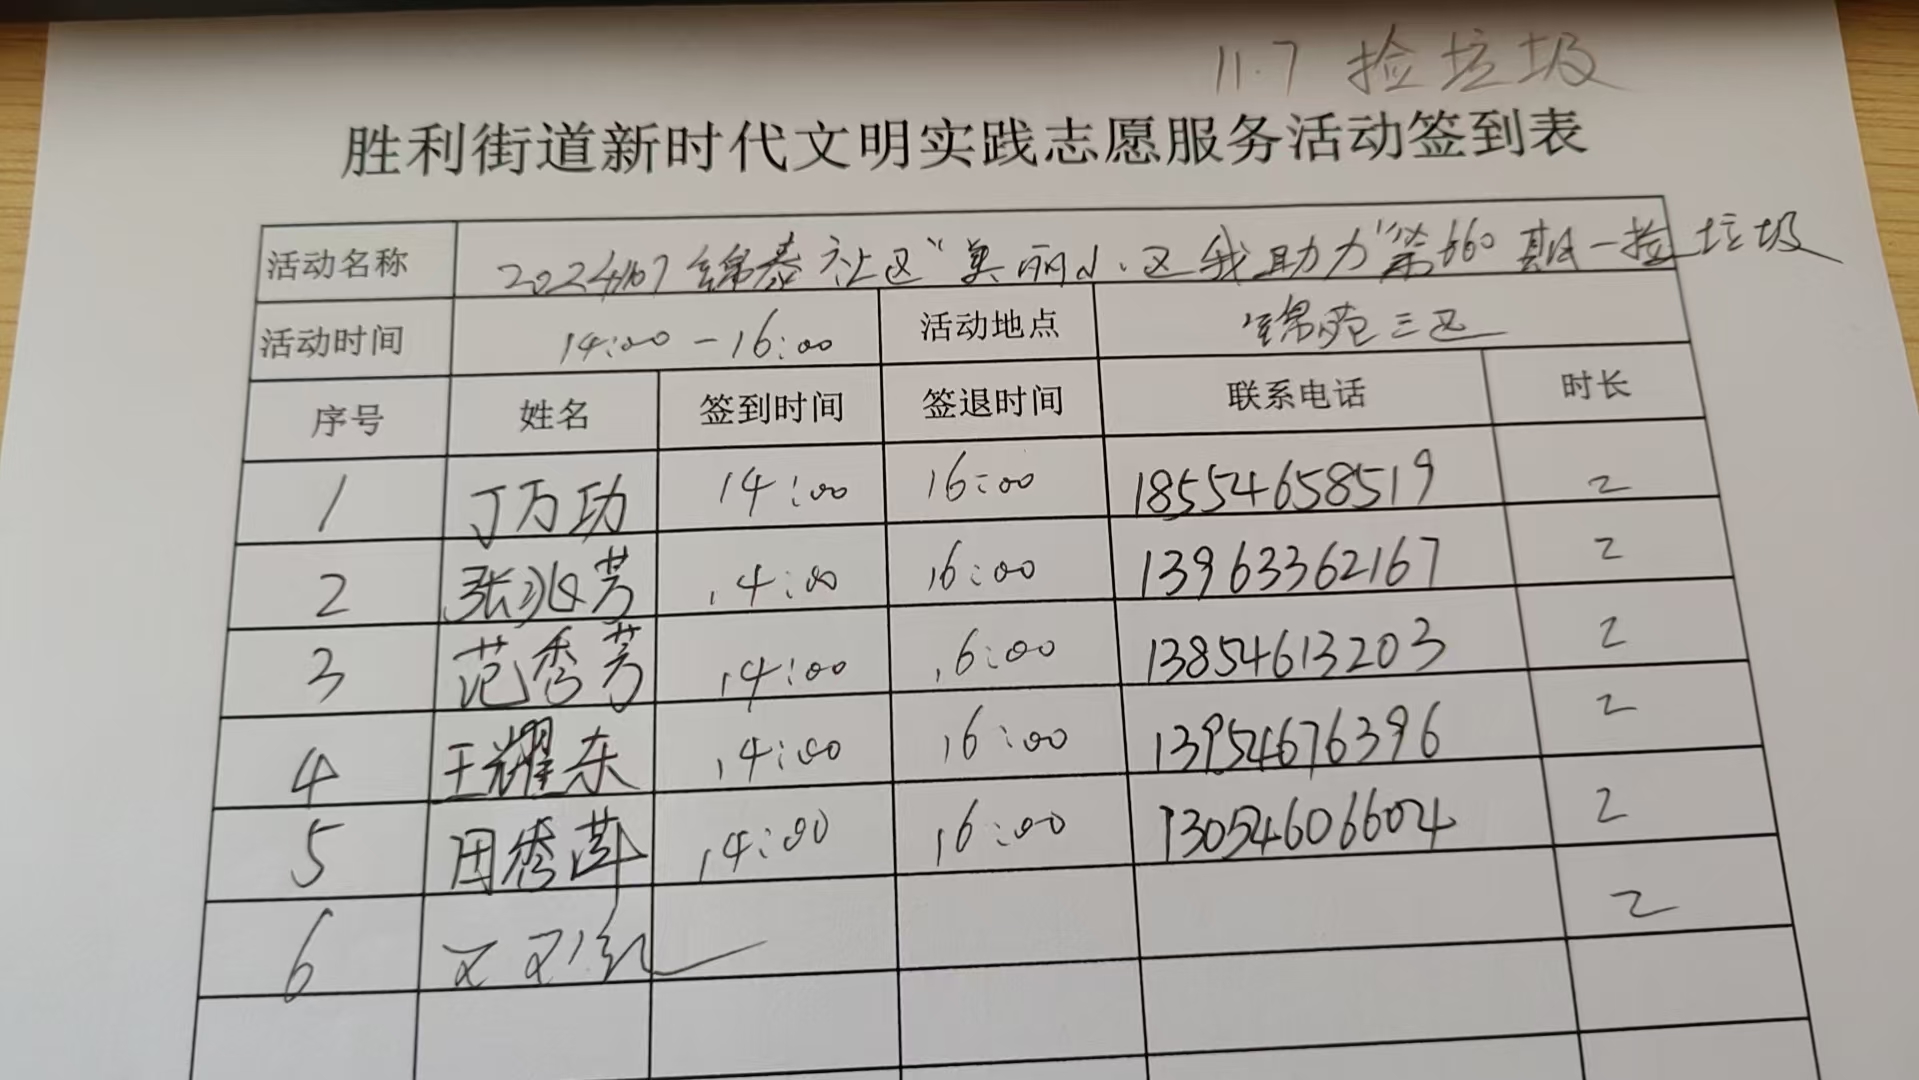 11.7 捡垃圾
胜利街道新时代文明实践志愿服务活动签到表
活动名称 20241107锦泰社区“美丽小区我助力”第660期-捡垃圾
活动时间 14:00-16:00 活动地点 锦苑三区
序号 姓名 签到时间 签退时间 联系电话 时长
1 丁万功 14:00 16:00 18554658519 2
2 张兆芳 14:00 16:00 13963362167 2
3 范秀芳 14:00 16:00 13854613203 2
4 王耀东 14:00 16:00 13954676396 2
5 田秀萍 14:00 16:00 13054606604 2
6 2